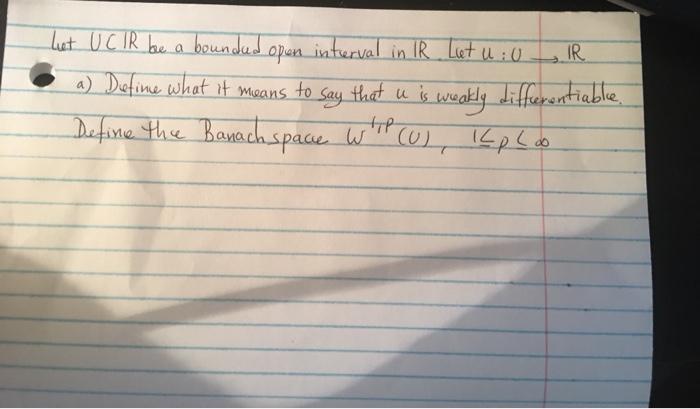 Let U ⊂ IR be a bounded open interval in IR. Let u : U → IR
a) Define what it means to say that u is weakly differentiable.
Define the Banach space W^{1,p}(U), 1 ≤ p ≤ ∞